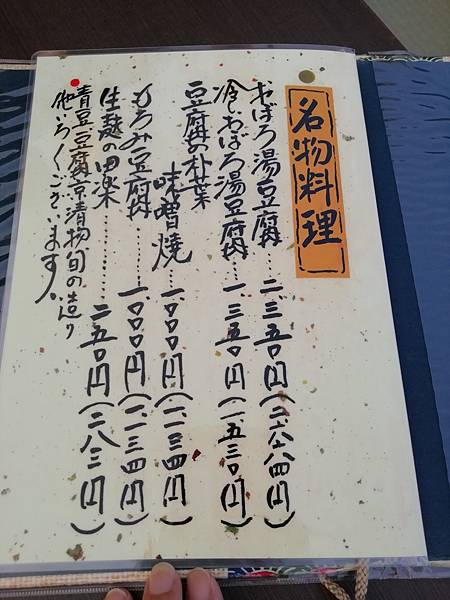 名物料理
おぼろ湯豆腐…二三五〇円(二六八四円)
冷しおぼろ湯豆腐…一三五〇円(一五三〇円)
豆腐の朴葉
味噌焼…一、〇〇〇円(一、一三四円)
もろみ豆腐…一、〇〇〇円(一、一三四円)
生麩の田楽………二五〇円(二八三円)
青豆豆腐京漬物旬の造り
他いろ〱ございます。